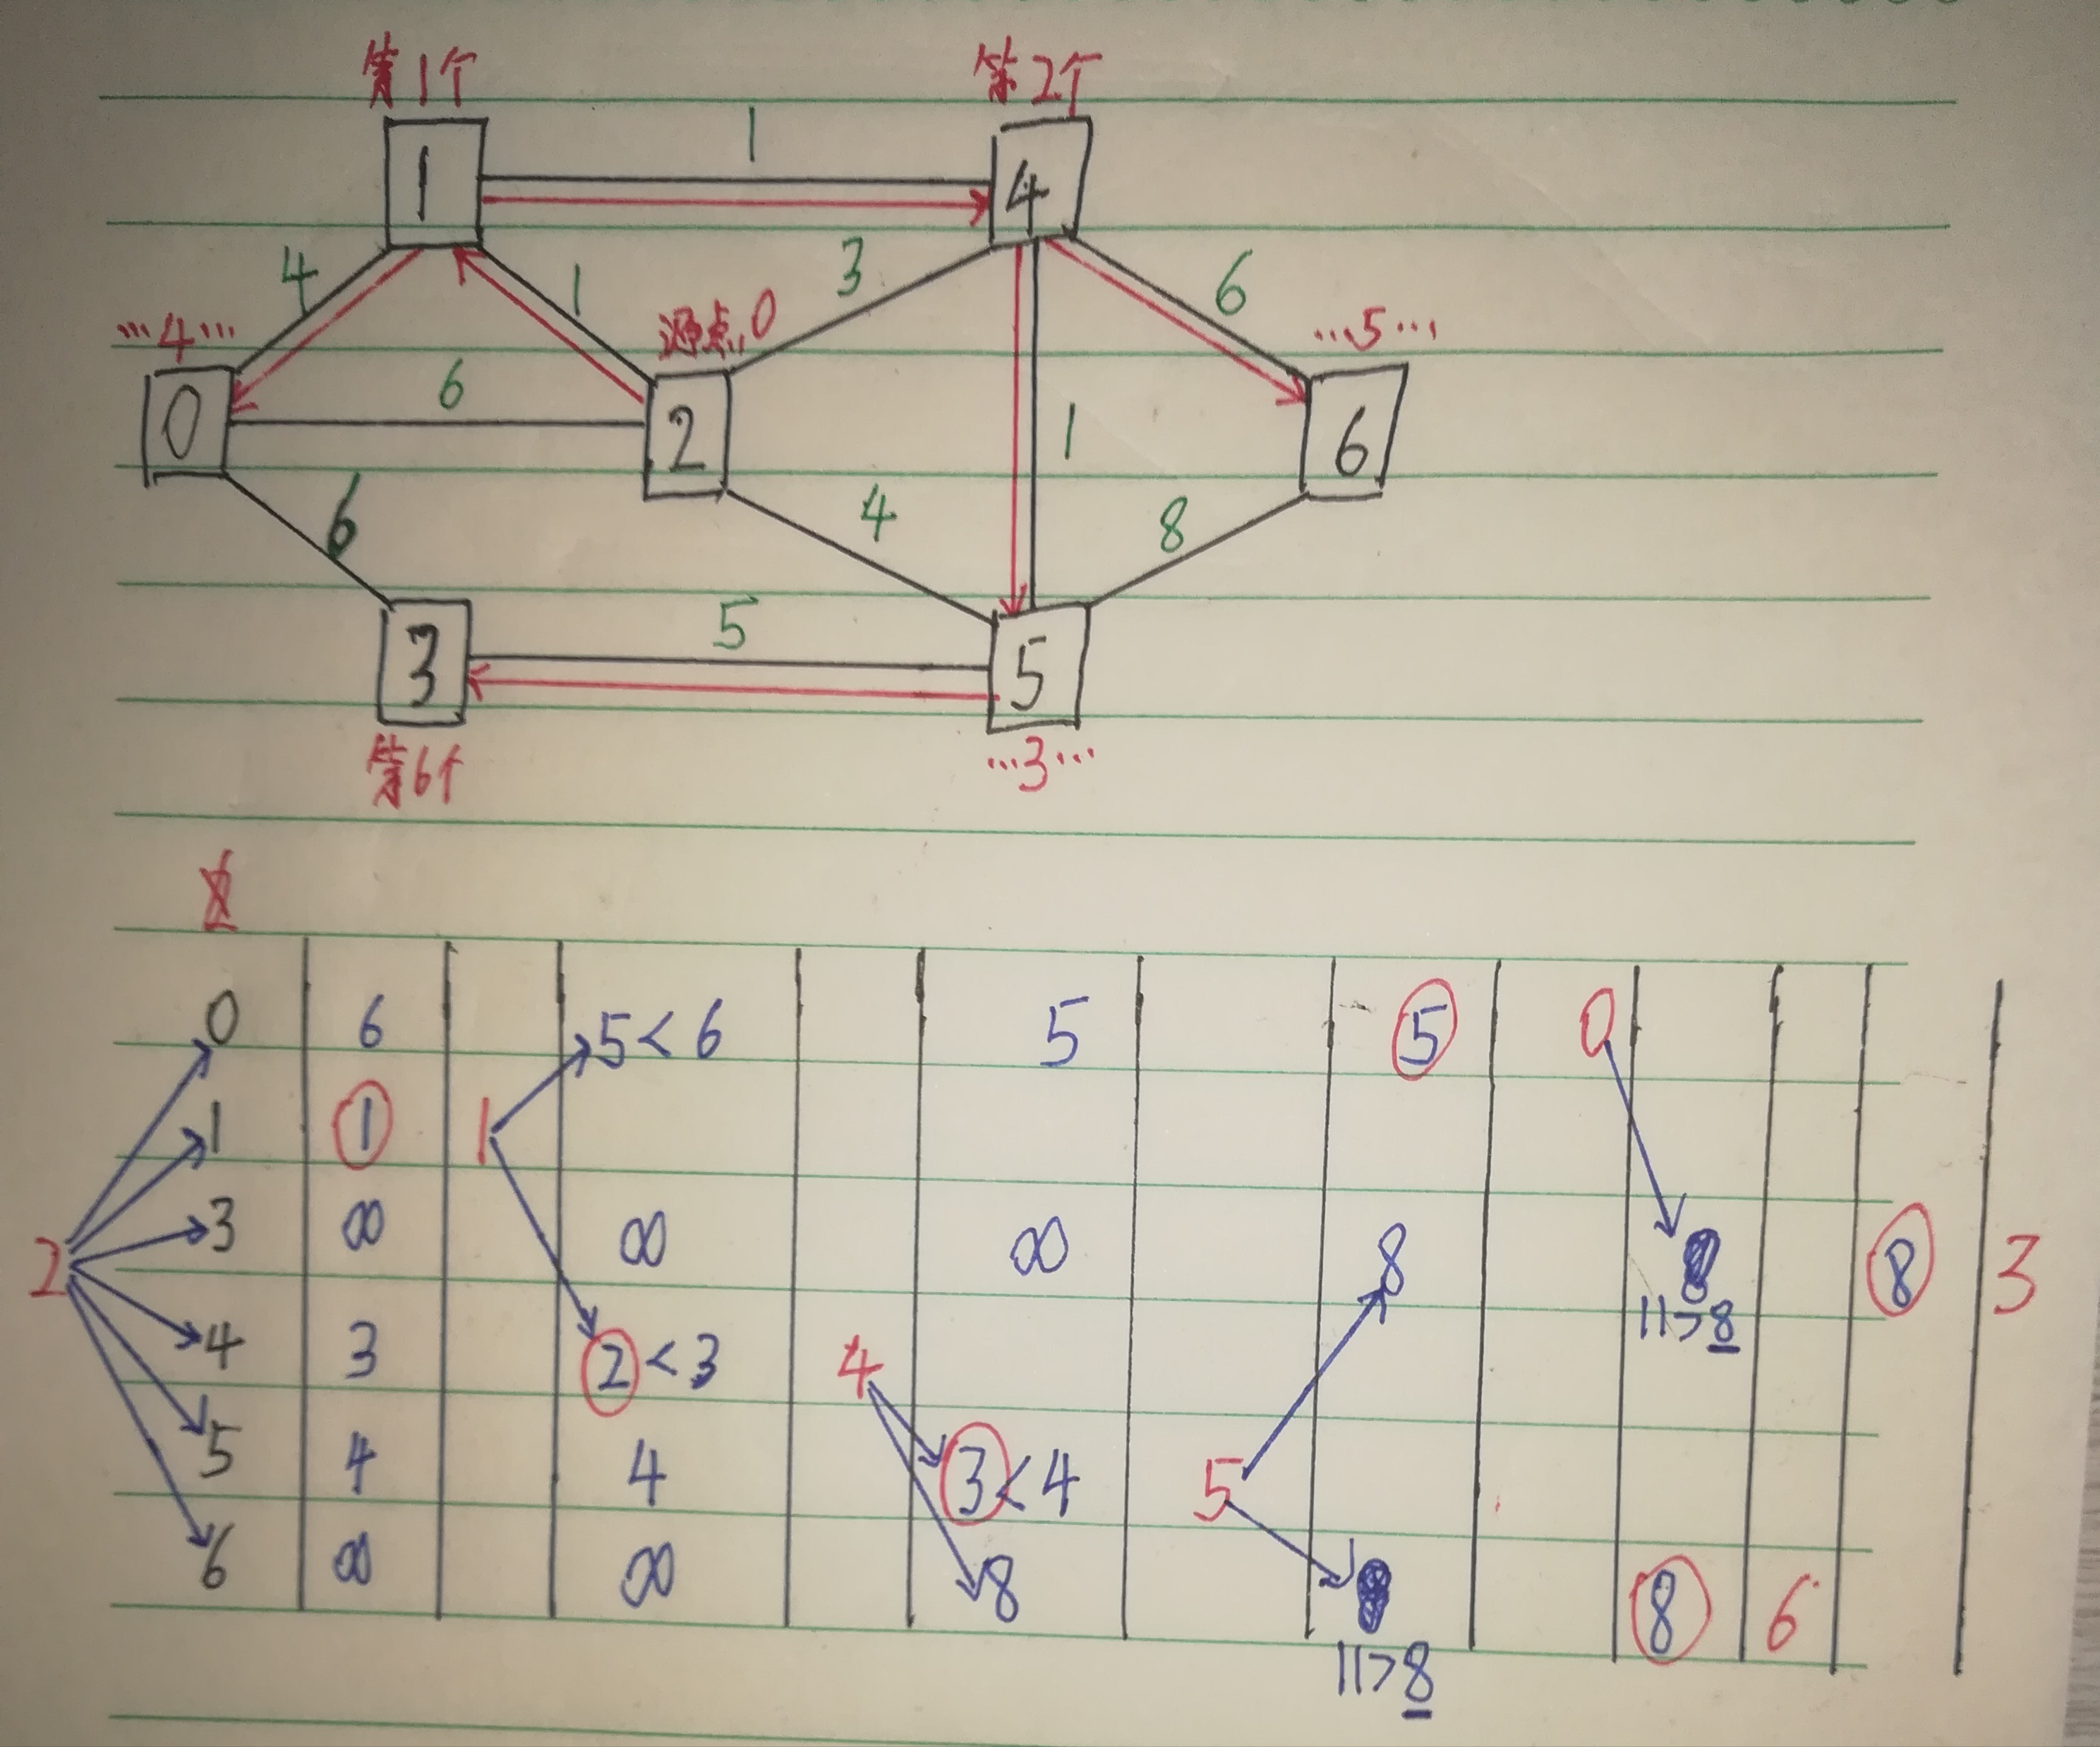 第1个 第2个
1
1 4
4 1 3 6
…4… 源点,0 …5…
6
0 2 1 6
6 4 8
5
3 5
第6个 …3…
0 6 5<6 5 5 0
1 1 1
2 3 ∞ ∞ ∞ 8 8 8 3
11>8
4 3 2<3 4
5 4 4 3<4 5
6 ∞ ∞ 8 8 6
11>8